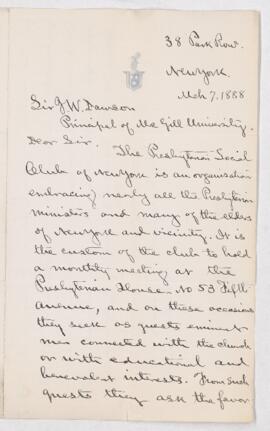 38 Park Row.
New York.
Mch 7, 1888
Sir J W. Dawson
Principal of Mc Gill University.
Dear Sir. The Presbyterian Social
Club of New York is an organisation
embracing nearly all the Presbyterian
ministers and many of the elders
of New York and vicinity. It is
the custom of the club to hold
a monthly meeting at the
Presbyterian House. No 53 Fifth
avenue, and on these occasions
they seek as guests eminent
men connected with the church
or with educational and
benevolent interests. From such
guests they ask the favor